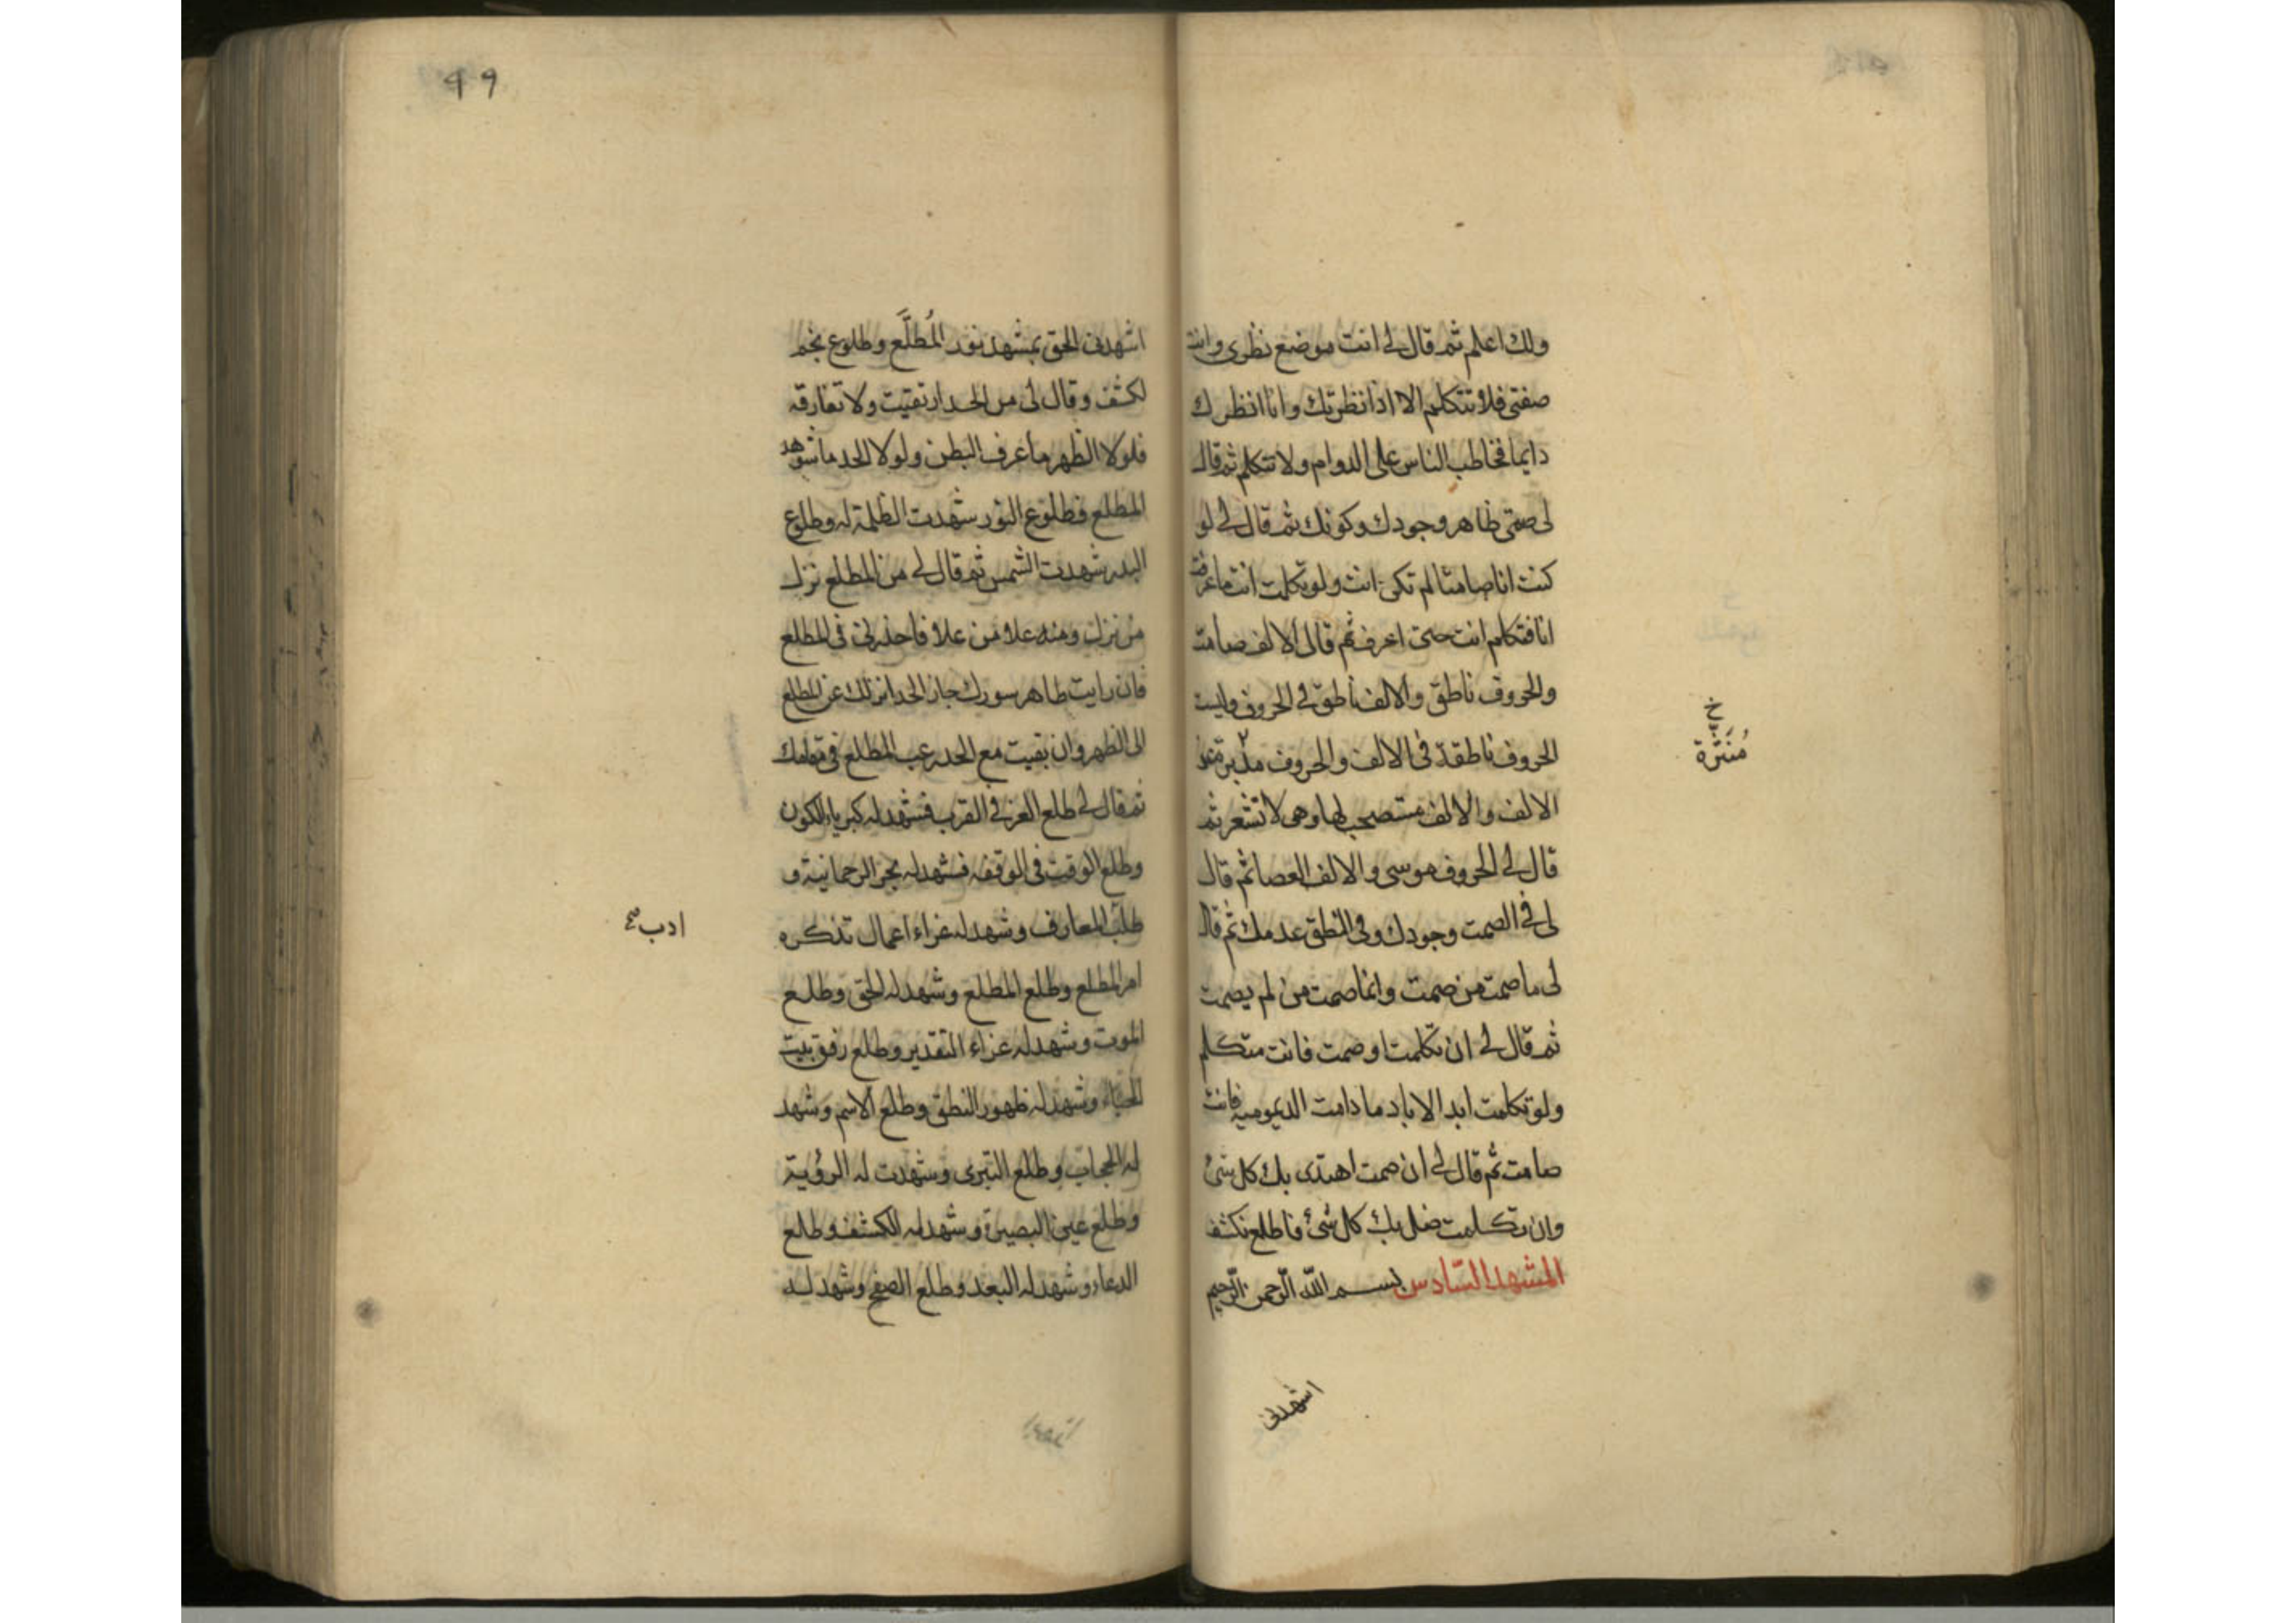 ولك اعلم ثم قال لى انت موضع نظرى وانت
صفتى فلا تتكلم الا اذا نظرتك وانا انظرك
دايما فخاطب الناس على الدوام ولا تتكلم ثم قال
لى صمتى ظاهر وجودك وكونك ثم قال لى لو
كنت انا صامتا لم تكن انت ولو تكلمت انت ما عرفت
انا فتكلم انت حتى اعرف ثم قال لى الالف صامت
والحروف ناطق والالف ناطق فى الحروف وليست
الحروف ناطقة فى الالف والحروف مدبرة عن
الالف والالف مستصحب لها وهى لا تشعر ثم
قال لى الحروف موسى والالف العصا ثم قال
لى فى الصمت وجودك وفى النطق عدمك ثم قال
لى ما صمت من صمت وانما صمت من لم يصمت
ثم قال لى ان تكلمت او صمت فانت متكلم
ولو تكلمت ابد الاباد ما دامت الديمومية فانت
صامت ثم قال لى ان صمت اهتدى بك كل شئ
وان تكلمت ضل بك كل شئ فاطلع تكشف
المشهد السّادس بسم اللّه الرّحمن الرّحيم
اشهدنى
خ
49
اشهدنى الحق بمشهد نور المُطلَّع وطلوع نجم
لكشف وقال لى من الحد ارتقيت ولا تفارقه
فلولا الظهر ما عرف البطن ولولا الحد ما شوهد
المطلع فطلوع النور شهدت الظلمة له وطلوع
البدر شهدت الشمس ثم قال لى من المطلع نزل
من نزل ومنه علا من علا فاحذرنى فى المطلع
فان رايت ظاهر سورك جاز الحد انزلك عن المطلع
الى الظهر وان بقيت مع الحد المطلع فى مقامك
ثم قال لى طلع العز فى القرب فشهد له كبرياء الكون
وطلع الوقت فى الوقفه فشهد له بحر الرحمانية و
المعارف وشهد له عزاء اعمال تذكره
امر المطلع وطلع المطلع وشهد له الحق وطلع
الموت وشهد له عزاء التقدير وطلع رفق بيت
الحياء وشهد له ظهور النطق وطلع الاسم وشهد
له الحجاب وطلع التبرى وشهدت له الرؤية
وطلع عين البصيرة وشهد له الكشف وطلع
الدعاء وشهد له البعد وطلع الصفح وشهد له
ادب